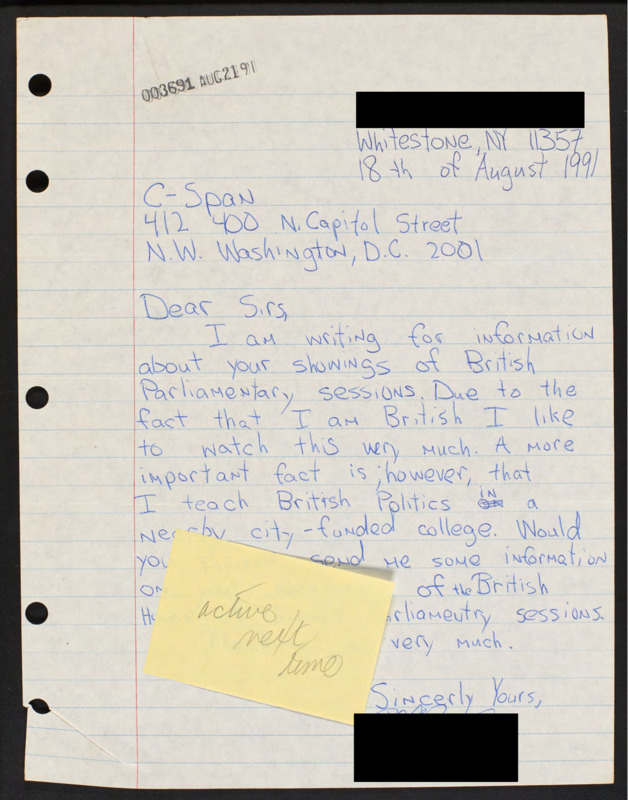 003691 AUG2191
Whitestone, NY 11357
18th of August 1991
C-Span
412 400 N. Capitol Street
N.W. Washington, D.C. 2001
Dear Sirs,
I am writing for information
about your showings of British
Parliamentary sessions. Due to the
fact that I am British I like
to watch this very much. A more
important fact is; however, that
I teach British Politics in a
nearby city-funded college. Would
you send me some information
on of the British
rliamentry sessions.
very much.
active
next
time
Sincerly Yours,